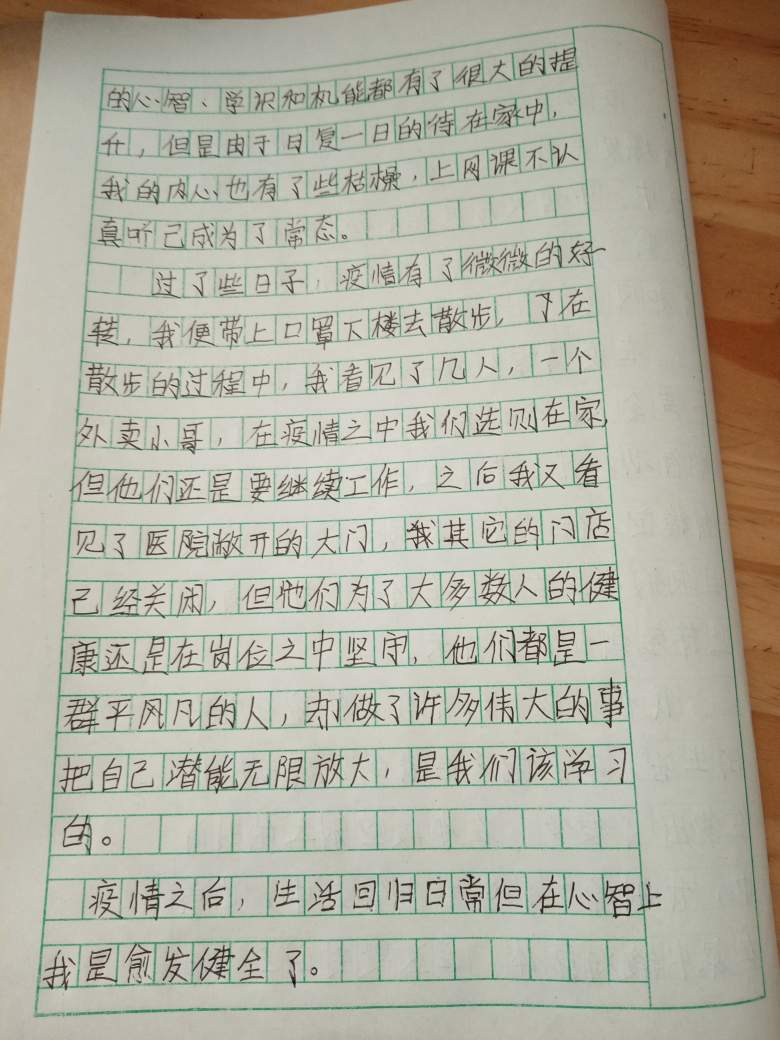 的心智、学识和机能都有了很大的提
升，但是由于日复一日的待在家中，
我的内心也有了些枯橾，上网课不认
真听已成为了常态。
过了些日子，疫情有了微微的好
转，我便带上口罩下楼去散步，在
散步的过程中，我看见了几人，一个
外卖小哥，在疫情之中我们选则在家，
但他们还是要继续工作，之后我又看
见了医院敞开的大门，我其它的门店
已经关闭，但他们为了大多数人的健
康还是在岗位之中坚守，他们都是一
群平风凡的人，却做了许多伟大的事
把自己潜能无限放大，是我们该学习
的。
疫情之后，生活回归日常但在心智上
我是愈发健全了。